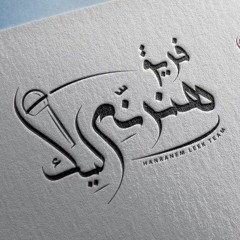 فرقة
هنرنم
ليك
HANRANEM LEEK TEAM